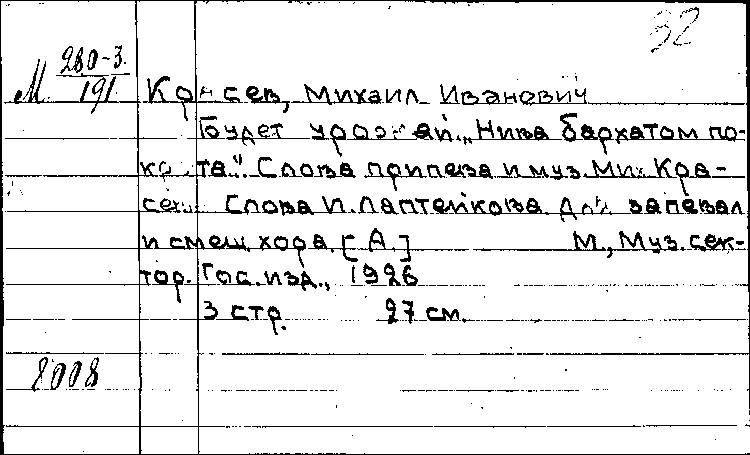 32
М 280-3
191
Красев, Михаил Иванович
Будет урожай. „Нива бархатом по-
крыта". Слова припева и муз. Мих. Кра-
сева. Слова И. Лаптейкова. Для запевал
и смеш. хора. [А.] М., Муз. сек-
тор. Гос. изд., 1926
3 стр. 27 см.
8008